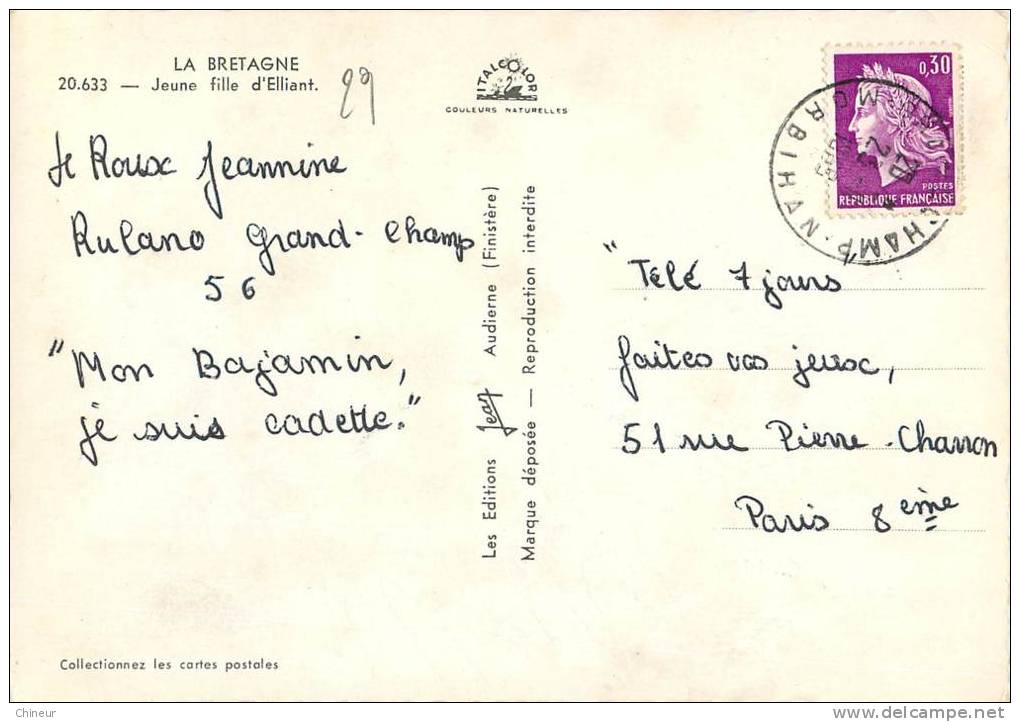 LA BRETAGNE
20.633 — Jeune fille d'Elliant.
29
ITALCOLOR
COULEURS NATURELLES
0,30
POSTES
REPUBLIQUE FRANÇAISE
CHAMP. MORBIHAN
le Roux Jeannine
Rulano Grand-Champ
56
"Mon Bajamin,
je suis cadette."
Les Editions Jean Audierne (Finistère)
Marque déposée — Reproduction interdite
"Télé 7 jours
faites vos jeux,
51 rue Pierre-Charron
Paris 8ème
Collectionnez les cartes postales
Chineur
delcampe.net